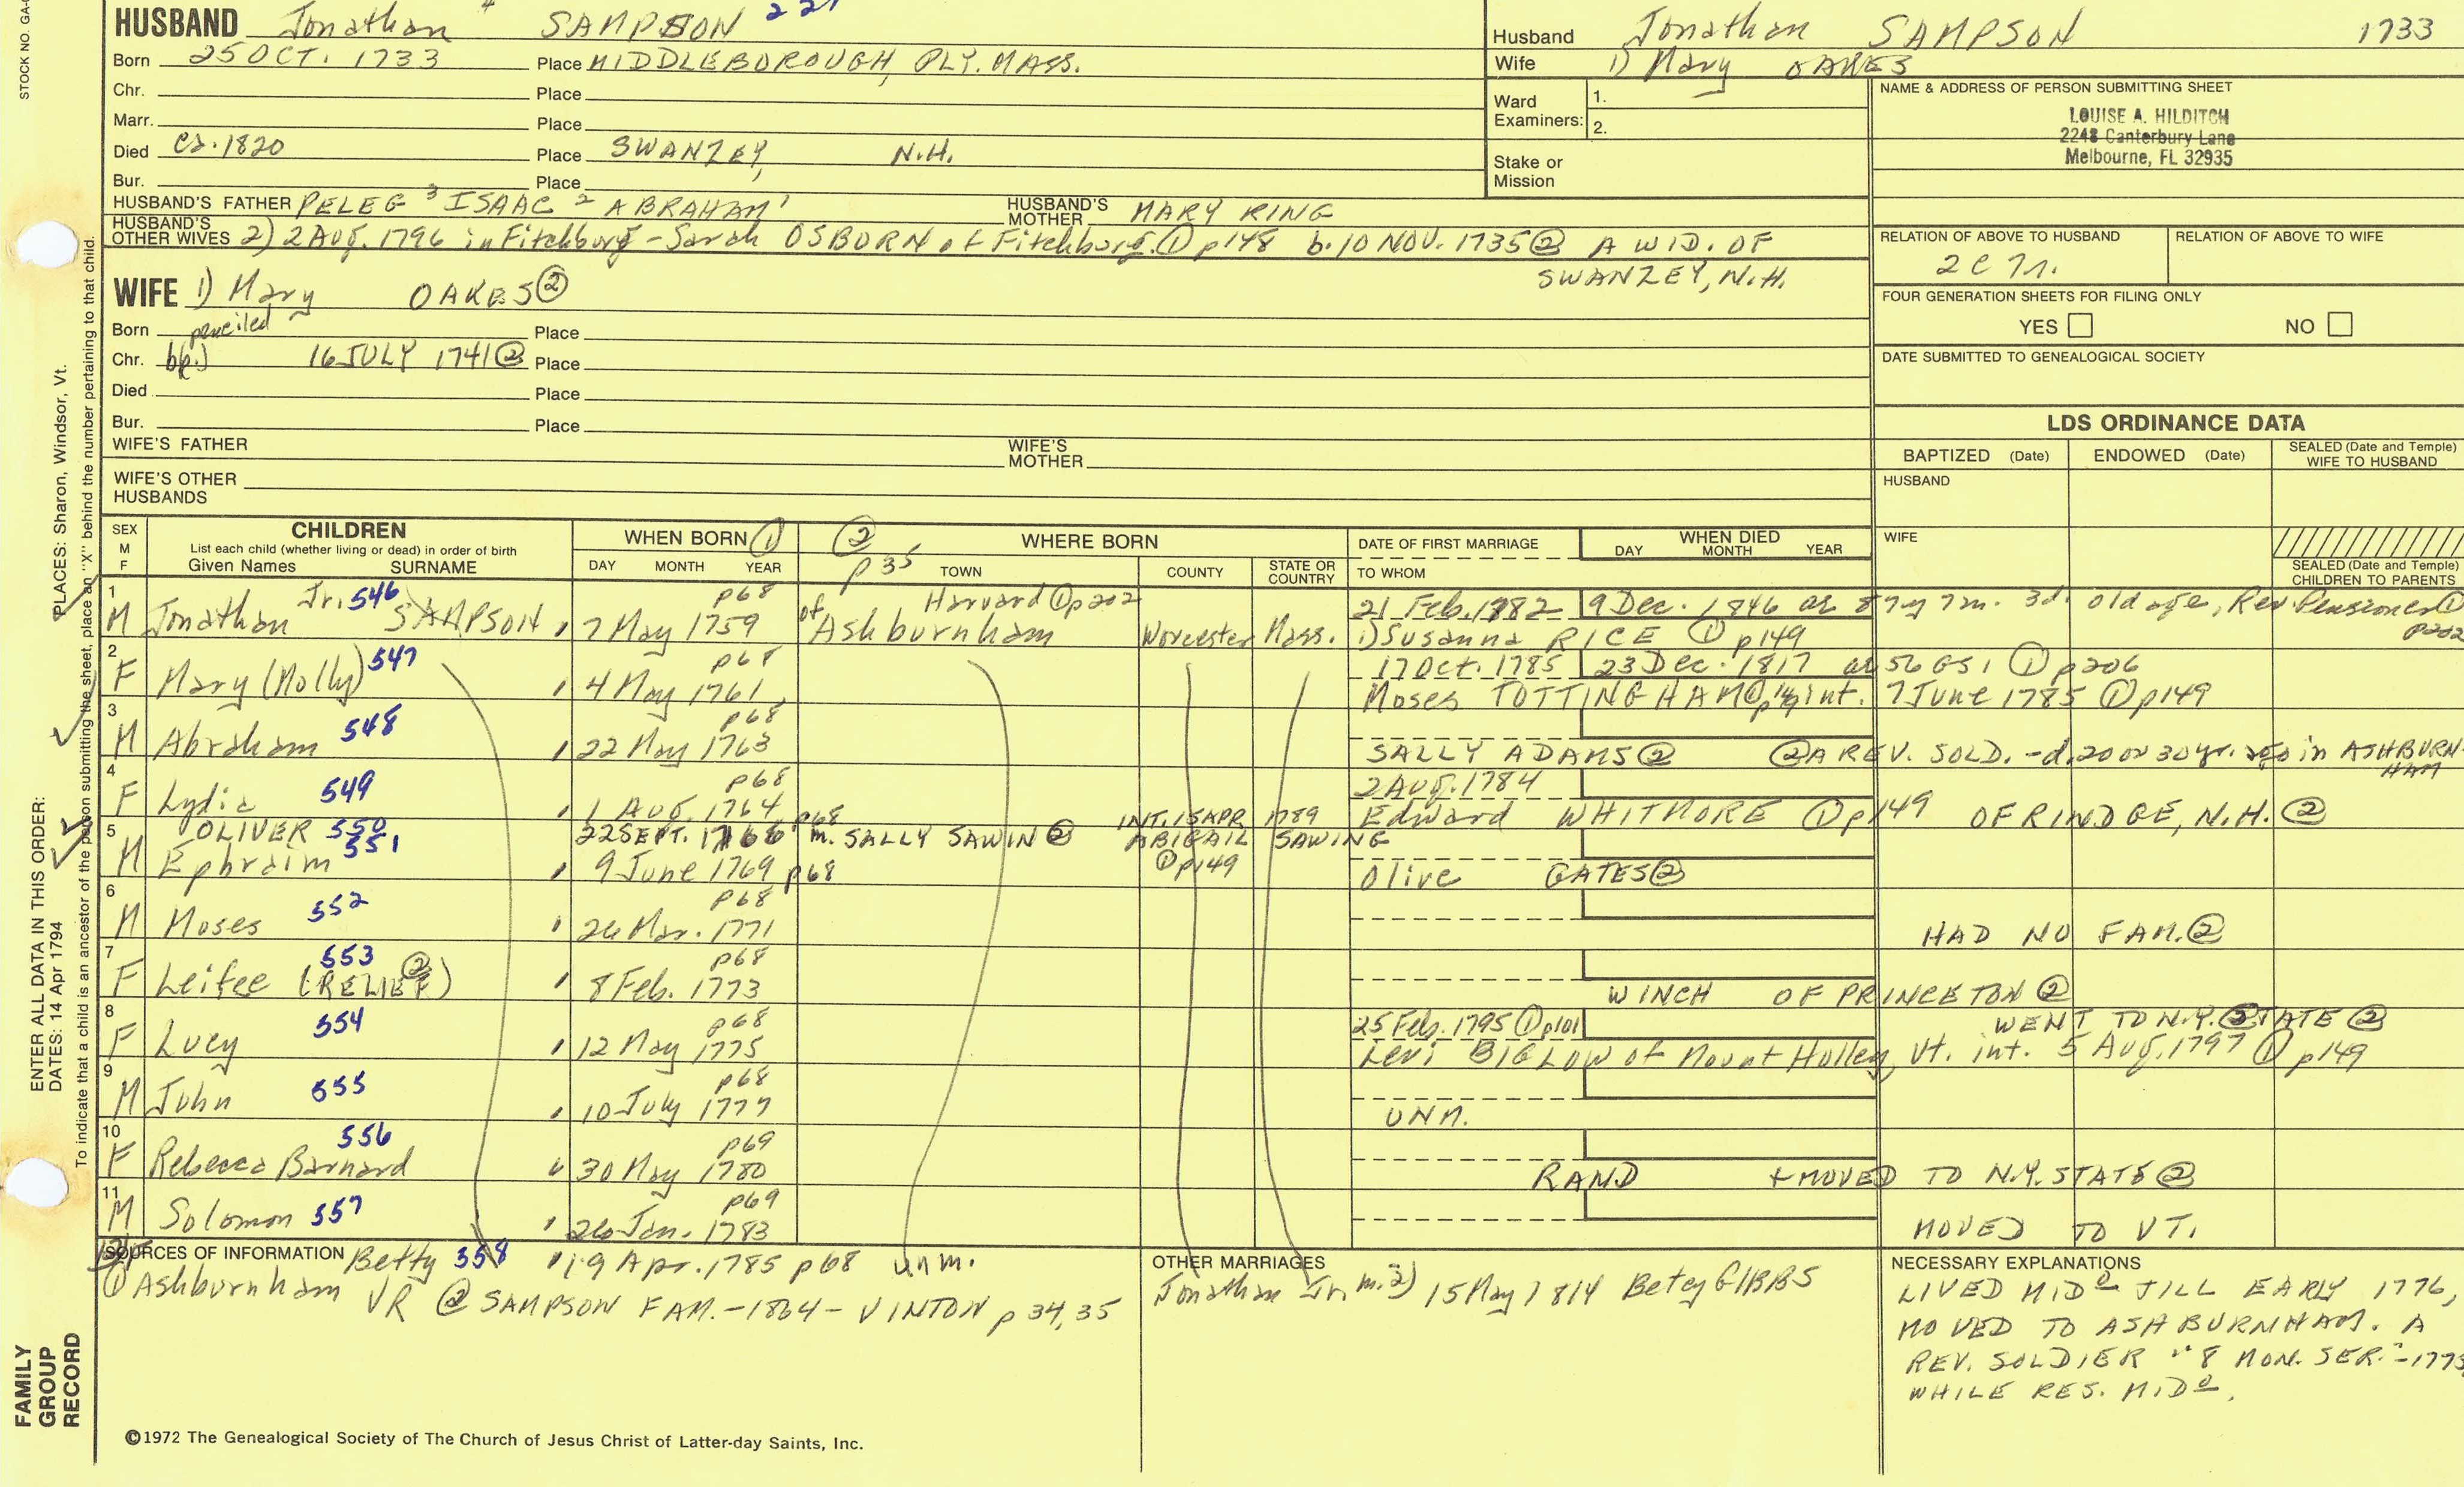 STOCK NO. GA
HUSBAND Jonathan 4 SAMPSON 221
Born 25 OCT. 1733 Place MIDDLEBOROUGH, PLY. MASS.
Chr. Place
Marr. Place
Died ca. 1820 Place SWANZEY, N.H.
Bur. Place
HUSBAND'S FATHER PELEG 3 ISAAC 2 ABRAHAM 1 HUSBAND'S MOTHER MARY RING
HUSBAND'S OTHER WIVES 2) 2 AUG. 1796 in Fitchburg - Sarah OSBORN of Fitchburg. ① p148 b. 10 NOV. 1735 ② A WID. OF
SWANZEY, N.H.
WIFE 1) Mary OAKES ②
Born penciled Place
Chr. bp.) 16 JULY 1741 ② Place
Died Place
Bur. Place
WIFE'S FATHER WIFE'S MOTHER
WIFE'S OTHER HUSBANDS
Husband Jonathan SAMPSON 1733
Wife 1) Mary OAKES
Ward Examiners: 1.
2.
Stake or Mission
NAME & ADDRESS OF PERSON SUBMITTING SHEET
LOUISE A. HILDITCH
2248 Canterbury Lane
Melbourne, FL 32935
RELATION OF ABOVE TO HUSBAND RELATION OF ABOVE TO WIFE
FOUR GENERATION SHEETS FOR FILING ONLY
YES NO
DATE SUBMITTED TO GENEALOGICAL SOCIETY
LDS ORDINANCE DATA
BAPTIZED (Date) ENDOWED (Date) SEALED (Date and Temple) WIFE TO HUSBAND
HUSBAND
WIFE
SEALED (Date and Temple) CHILDREN TO PARENTS
SEX M F
CHILDREN
List each child (whether living or dead) in order of birth
Given Names SURNAME
WHEN BORN ①
DAY MONTH YEAR
② p35 WHERE BORN
TOWN COUNTY STATE OR COUNTRY
DATE OF FIRST MARRIAGE
TO WHOM
WHEN DIED
DAY MONTH YEAR
1 Jr. 546 p68 Harvard ① p202 21 Feb. 1782 9 Dec. 1846 ae 87y 7m. 3d. old age, Rev. Pensioner ① p202
M Jonathan SAMPSON 7 May 1759 of Ashburnham Worcester Mass. 1) Susanna RICE ① p149
2 547 p68 17 Oct. 1785 23 Dec. 1817 ae 56 GS1 ① p206
F Mary (Molly) 4 May 1761 Moses TOTTINGHAM int. 7 June 1785 ① p149
3 548 p68
M Abraham 22 May 1763 SALLY ADAMS ② ② A REV. SOLD. - d. 20 or 30 yr. ago in ASHBURNHAM
4 549 p68 2 AUG. 1784
F Lydia 1 AUG. 1764 p68 Edward WHITMORE ① p149 OF RINDGE, N.H. ②
5 OLIVER 550 22 SEPT. 1766 m. SALLY SAWIN ② INT. 15 APR 1789 ABIGAIL SAWING ① p149
M Ephraim 551 9 June 1769 p68 Olive GATES ②
6 552 p68
M Moses 26 Mar. 1771 HAD NO FAM. ②
7 553 p68
F Leifee (RELIEF ②) 8 Feb. 1773 WINCH OF PRINCETON ②
8 554 p68 25 Feb. 1795 ① p101 WENT TO N.Y. STATE ②
F Lucy 12 May 1775 Levi BIGLOW of Mount Holley, Vt. int. 5 Aug. 1797 ① p149
9 555 p68
M John 10 July 1777 UNM.
10 556 p69
F Rebecca Barnard 30 May 1780 RAND + MOVED TO N.Y. STATE ②
11 557 p69
M Solomon 26 Jan. 1783 MOVED TO VT.
SOURCES OF INFORMATION Betty 558 19 Apr. 1785 p68 unm.
① Ashburnham VR ② SAMPSON FAM. - 1864 - VINTON p 34, 35
OTHER MARRIAGES
Jonathan Jr. m. 2) 15 May 1814 Betey GIBBS
NECESSARY EXPLANATIONS
LIVED MIDo TILL EARLY 1776,
MOVED TO ASHBURNHAM. A
REV. SOLDIER "8 MON. SER." - 1775
WHILE RES. MIDo.
©1972 The Genealogical Society of The Church of Jesus Christ of Latter-day Saints, Inc.
FAMILY GROUP RECORD
ENTER ALL DATA IN THIS ORDER:
DATES: 14 Apr 1794
PLACES: Sharon, Windsor, Vt.
To indicate that a child is an ancestor of the person submitting the sheet, place an "X" behind the number pertaining to that child.